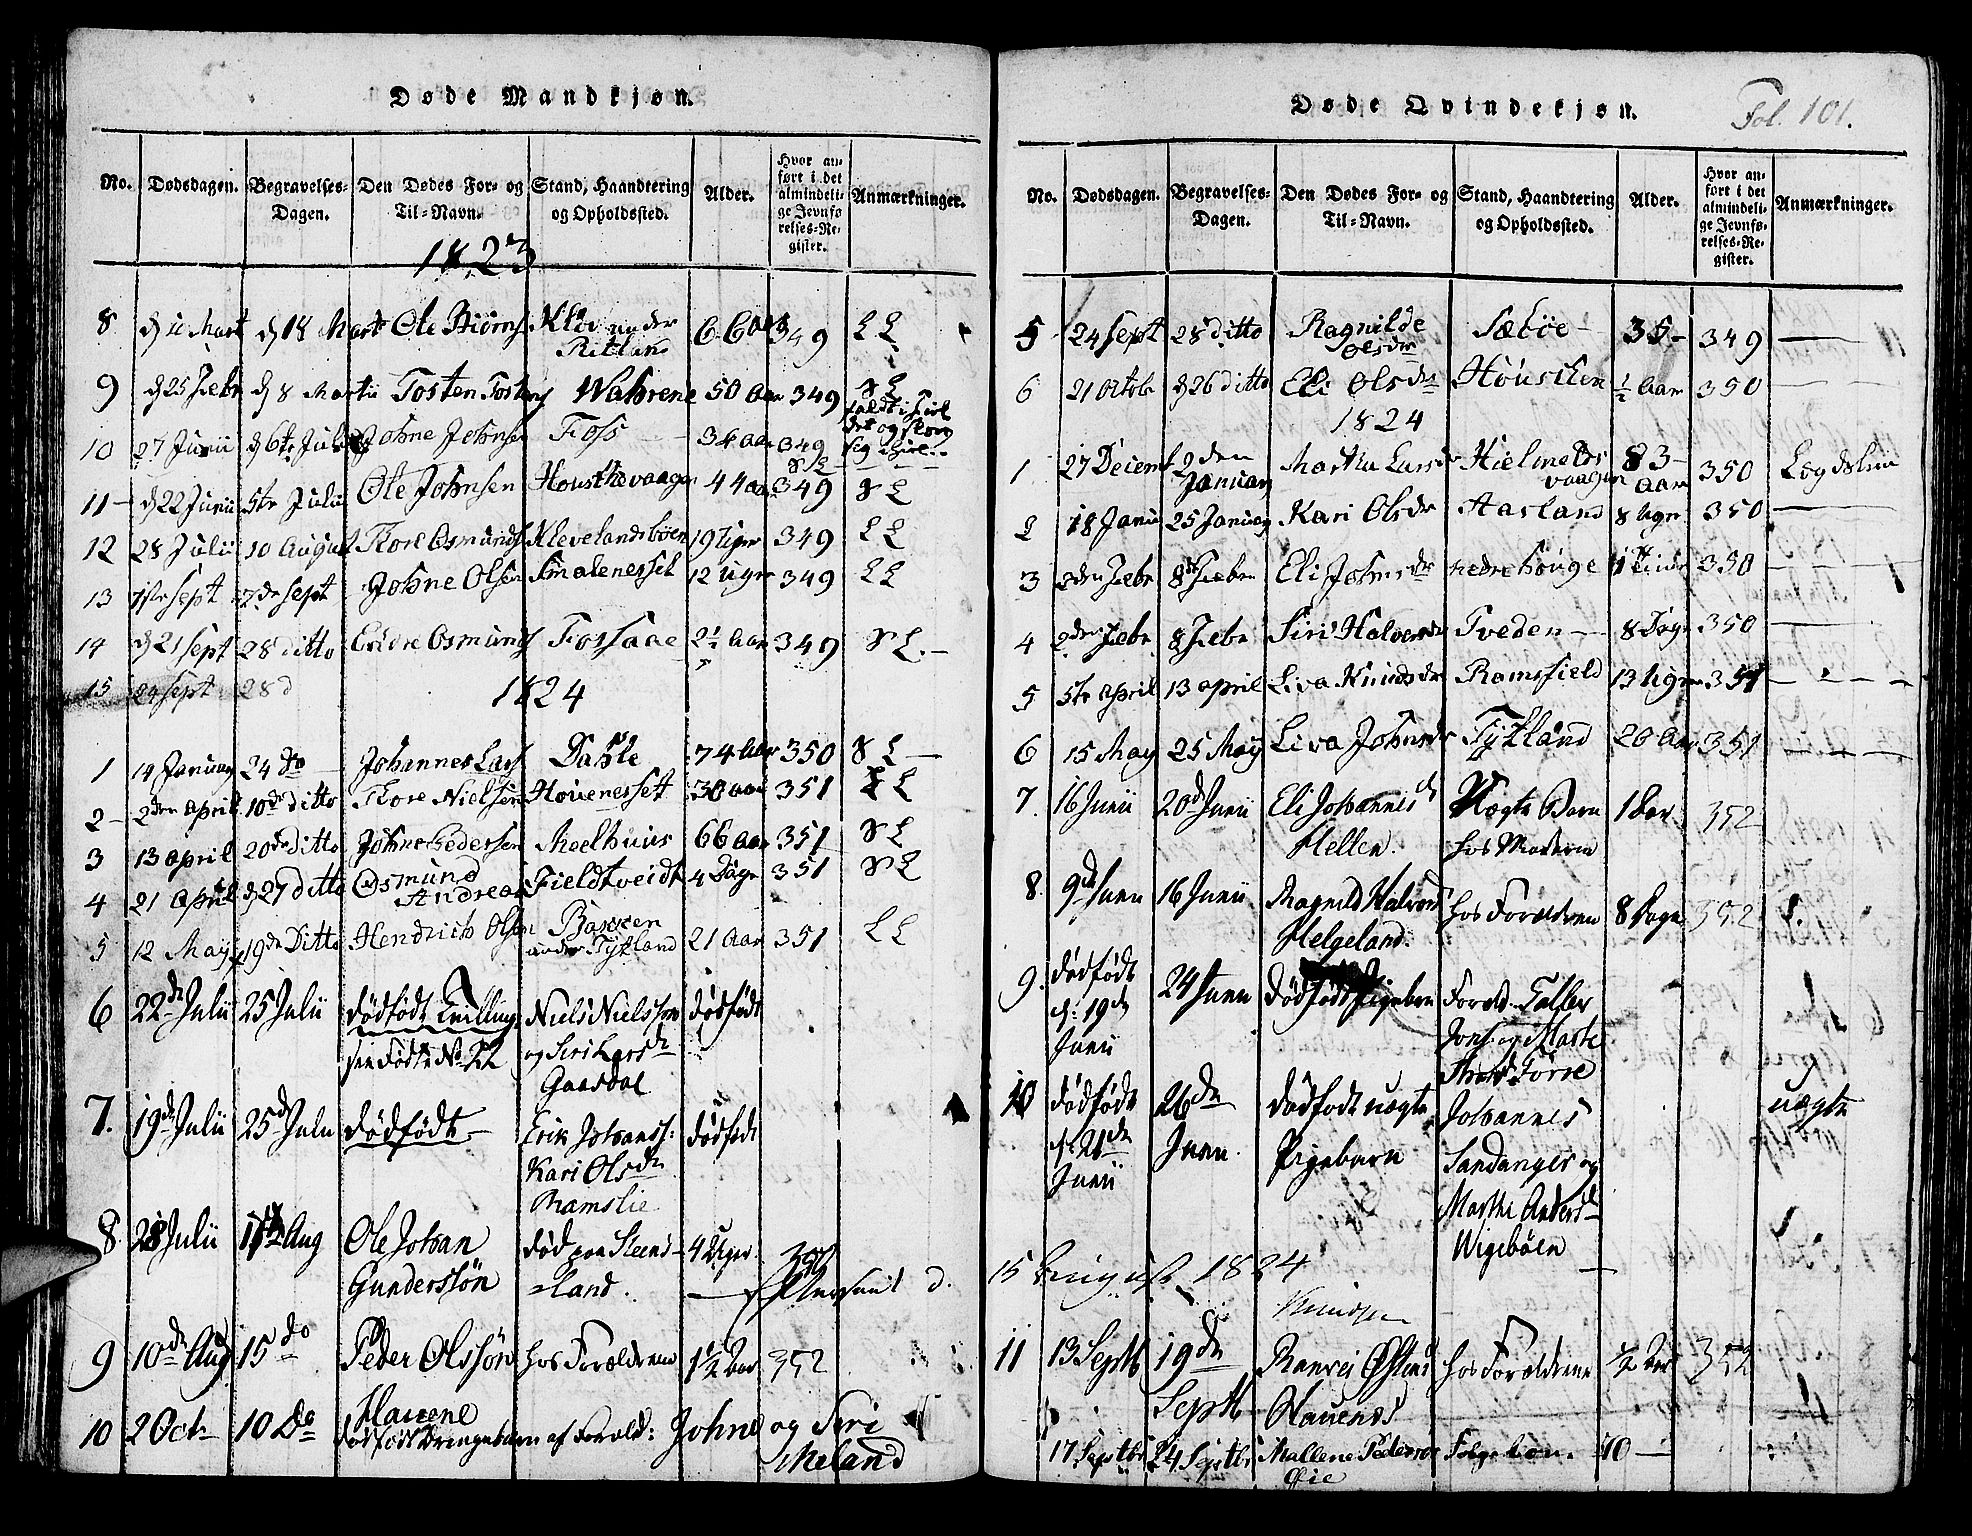 Døde Mandkjøn.
No. Dødsdagen. Begravelses-Dagen. Den Dødes For- og Til-Navn. Stand, Haandtering og Opholdssted. Alder. Hvor anført i det almindelige Jevnførelses-Register. Anmærkninger.
1823
8 d 11 Mart d 18 Mart Ole Biørns Kliv under Ritland 6 Aar 349 L L
9 d 25 Febr d 8 Martii Tosten Tostens Wabrene 50 Aar 349
10 27 Junii d 6te Julii Johne Johnsen Foss 34 Aar 349
11 d 22 Junii 5te Julii Ole Johnsen Housthevaagen 44 Aar 349
12 28 Julii 10 August Tore Osmunds Klevelandsbøen 19 Uger 349 L L
13 1ste Sept 7de Sept Johne Olsen Smalenesset 12 Uger 349 L L
14 d 21 Sept 28 ditto Endre Osmunds Fossaae 2½ Aar 349
15 24 Sept 28 d
1824
1 14 Januay 24 Do Johannes Lars Dahle 74 Aar 350
2 2den April 10de ditto Tore Nielsen Houenesset 30 Aar 351
3 13 April 20de ditto Johne Pedersen Meelhuus 66 Aar 351
4 21 April d 27 ditto Osmund Andreas Fieldtveidt 4 Dage 351
5 12 Maÿ 19de Ditto Hendrich Olsen Backen under Tytland 21 Aar 351 L L
6 22de Julii 25 Julii Dødfødt Tvilling Niels Nielssøn dødfødt
see Fødte No 22 og Siri Larsdr
Gaasdal
7. 19de Julii 25de Julii Dødfødt Erik Johanss: dødfødt
Kari Olsdr
Ramslie
8. 28 Julii 1ste Aug Ole Johan død paa Steens- 4 Uger
Gunderssøn =land.
9 10de Aug 15 do Peder Olssøn hos Forældrene 1½ Aar 352
Hauene
10 2 Octr 10 Do dødfødt Drengebarn af Foræld: Johne og Siri
Meland
Døde Qvindekjøn.
Fol. 101.
No. Dødsdagen. Begravelses-Dagen. Den Dødes For- og Til-Navn. Stand, Haandtering og Opholdssted. Alder. Hvor anført i det almindelige Jevnførelses-Register. Anmærkninger.
5 24 Sept 28 ditto Ragnilde Olsdr Sæbøe 35 349
6 21 Octob d 26 ditto Eli Olsdr Housken ½ Aar 350
1824
1 27 Decemb 2den Januay Martha Larsdr Hielmelsvaagen 83 Aar 350
2 18 Janu 25 Januay Kari Olsdr Aasland 8 Uger 350
3 2den Febr 8de Febr Eli Johnsdr nedre Houge 350
4 2den Febr 8 Febr Siri Halvorsdr Tveden 8 Dage 350
5 5te April 13 April Liva Knudsdr Ramsfield 13 Uger 351
6 15 May 25 Maÿ Liva Johnsdr Tytland 20 Aar 351
7. 16 Junii 20de Junii Eli Johannesdr Uægte Barn 1 Aar 352
Hellen. hos Moderen
8. 9de Junii 16 Junii Magnild Halvorsd hos Forældrene 8 Dage 352
Helgeland.
9. dødfødt d: 19de Junii 24 Junii dødfødt Pigebarn Foræld.
10 dødfødt d: 21de Junii 26de Junii dødfødt uægte Pigebarn Johannes Sandanger og Marthe Andersd Wigebøen uægte
15 August 1824
11 13 Septb 19de Septb hos Forældrene ½ Aar 352
Hauenes
17 Septbr 24 Septbr Mallene Pedersdr 10
Øie